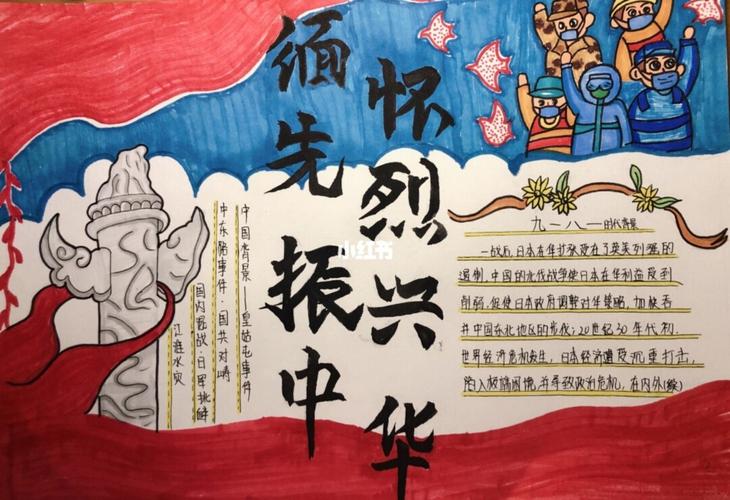 缅怀
先烈
振兴
中华
小红书
中国背景——皇姑屯事件
中东路事件·国共对峙
国内混战·日军挑衅
江淮水灾
九一八——时代背景
一战后,日本在华扩张受到了英美列强的
遏制,中国的北伐战争使日本在华利益受到
削弱,促使日本政府调整对华策略,加快吞
并中国东北地区的步伐;20世纪30年代初,
世界经济危机发生,日本经济遭受沉重打击,
陷入极端困境,并导致政治危机,在内外(续)